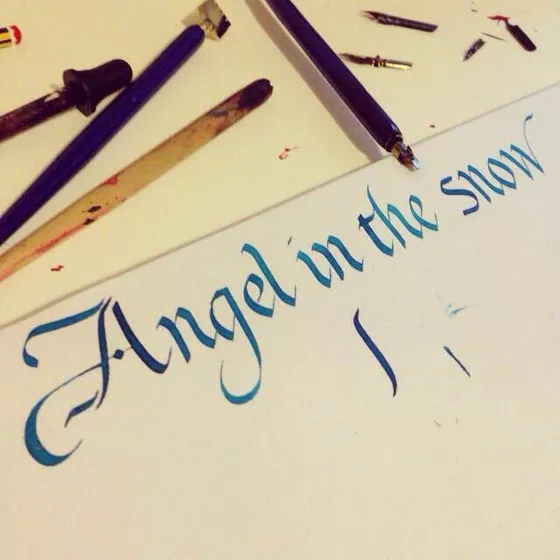 Angel in the snow